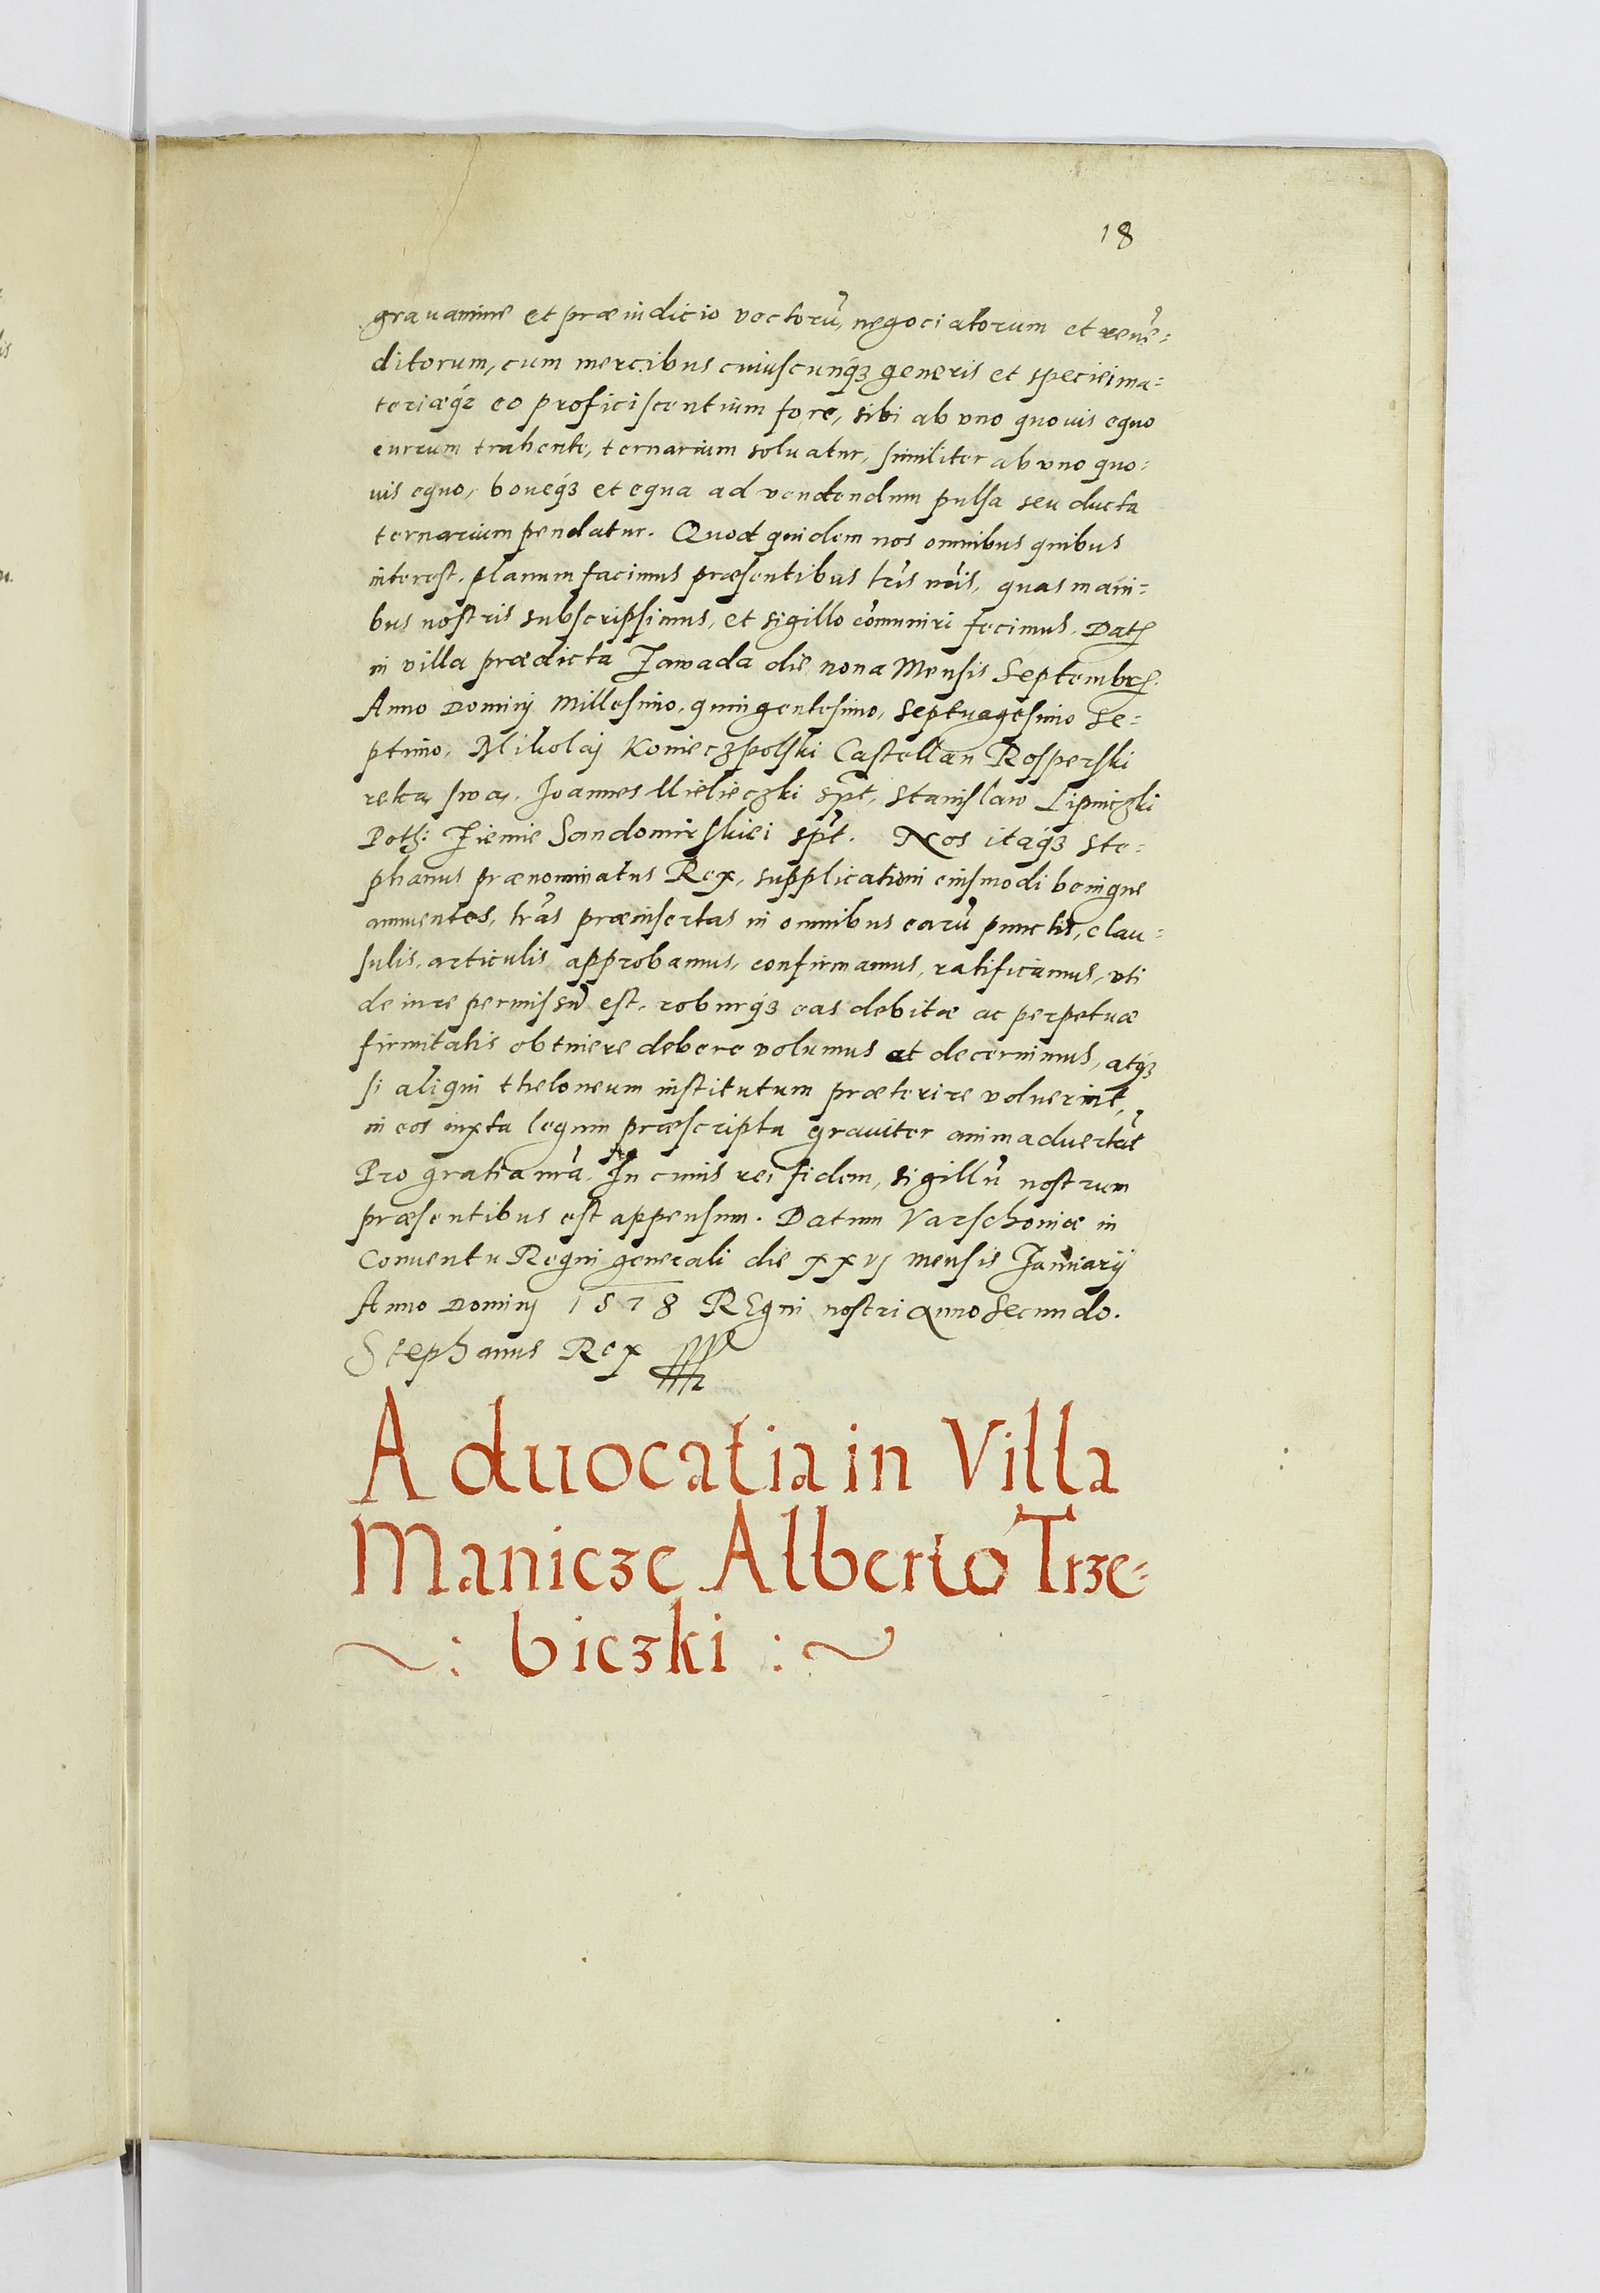 18
grauamine et præiudicio vectorũ, negociatorum et revẽ=
ditorum, cum mercibus cuiuscunq́ʒ generis et speciei ma=
teriæq́ʒ eo proficiscentium fore, sibi ab vno quouis equo
currum trahente, ternarium soluatur, similiter ab vno quo=
uis equo, boueq́ʒ et equa ad vendendum pulsa seu ducta
ternarium pendatur. Quod quidem nos omnibus quibus
interest, planum facimus præsentibus lr̃is nr̃is, quas mani=
bus nostris subscripsimus, et sigillo cõmuniri fecimus. Datʒ
in villa prædicta Zawada die nona Mensis Septembrʒ.
Anno Dominj Millesimo, quingentesimo, septuagesimo se=
ptimo, Mikolaj Konieczpolski Castellan Rosperski
reką swą. Joannes Mielieczki sp̃t, Stanislaw Lipniczki
Potʒ: Ziemie Sandomirskiei sp̃t. Nos itaq́ʒ Ste=
phanus prænominatus Rex, supplicationi eiusmodi benigne
annuentes, lr̃as præinsertas in omnibus earũ punctis, clau=
sulis, articulis approbamus, confirmamus, ratificamus, vti
de iure permissũ est, roburq́ʒ eas debitæ ac perpetuæ
firmitatis obtinere debere volumus et decernimus, atq́ʒ
si aliqui theloneum institutum præterire voluerint,
in eos iuxta legum præscripta grauiter animaduertẽt
Pro gratia nr̃a. In cuius rei fidem, sigillũ nostrum
præsentibus est appensum. Datum Varschoviæ in
Conuentu Regni generali die xxvj mensis Januarij
Anno Dominj 1578 REgni nostri anno secundo.
Stephanus Rex
Aduocatia in Villa
Manicze Alberto Trze=
biczki